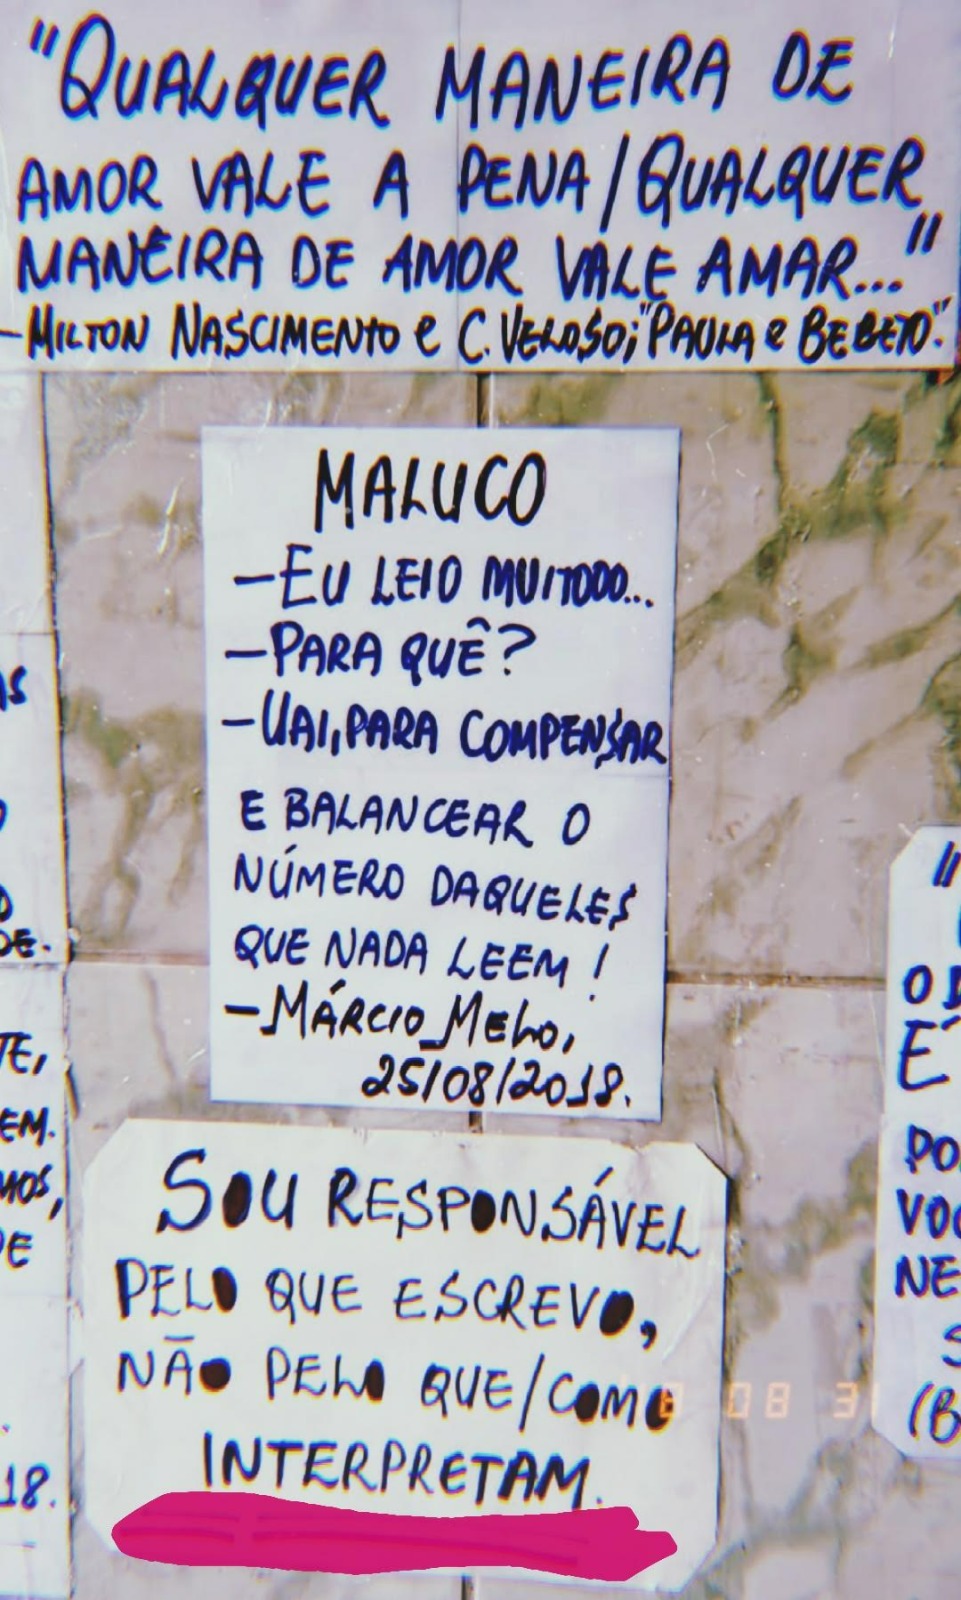 "QUALQUER MANEIRA DE
AMOR VALE A PENA/QUALQUER
MANEIRA DE AMOR VALE AMAR..."
-MILTON NASCIMENTO e C. VELOSO; "PAULA e BEBETO".
MALUCO
-EU LEIO MUITOOO...
-PARA QUÊ?
-UAI, PARA COMPENSAR
E BALANCEAR O
NÚMERO DAQUELES
QUE NADA LEEM!
-MÁRCIO MELO,
25/08/2018.
SOU RESPONSÁVEL
PELO QUE ESCREVO,
NÃO PELO QUE/COMO
INTERPRETAM.
08 31
AS
DE.
TE,
EM.
MOS,
DE
18.
"
O D
É
PO
VOC
NE
S
(B